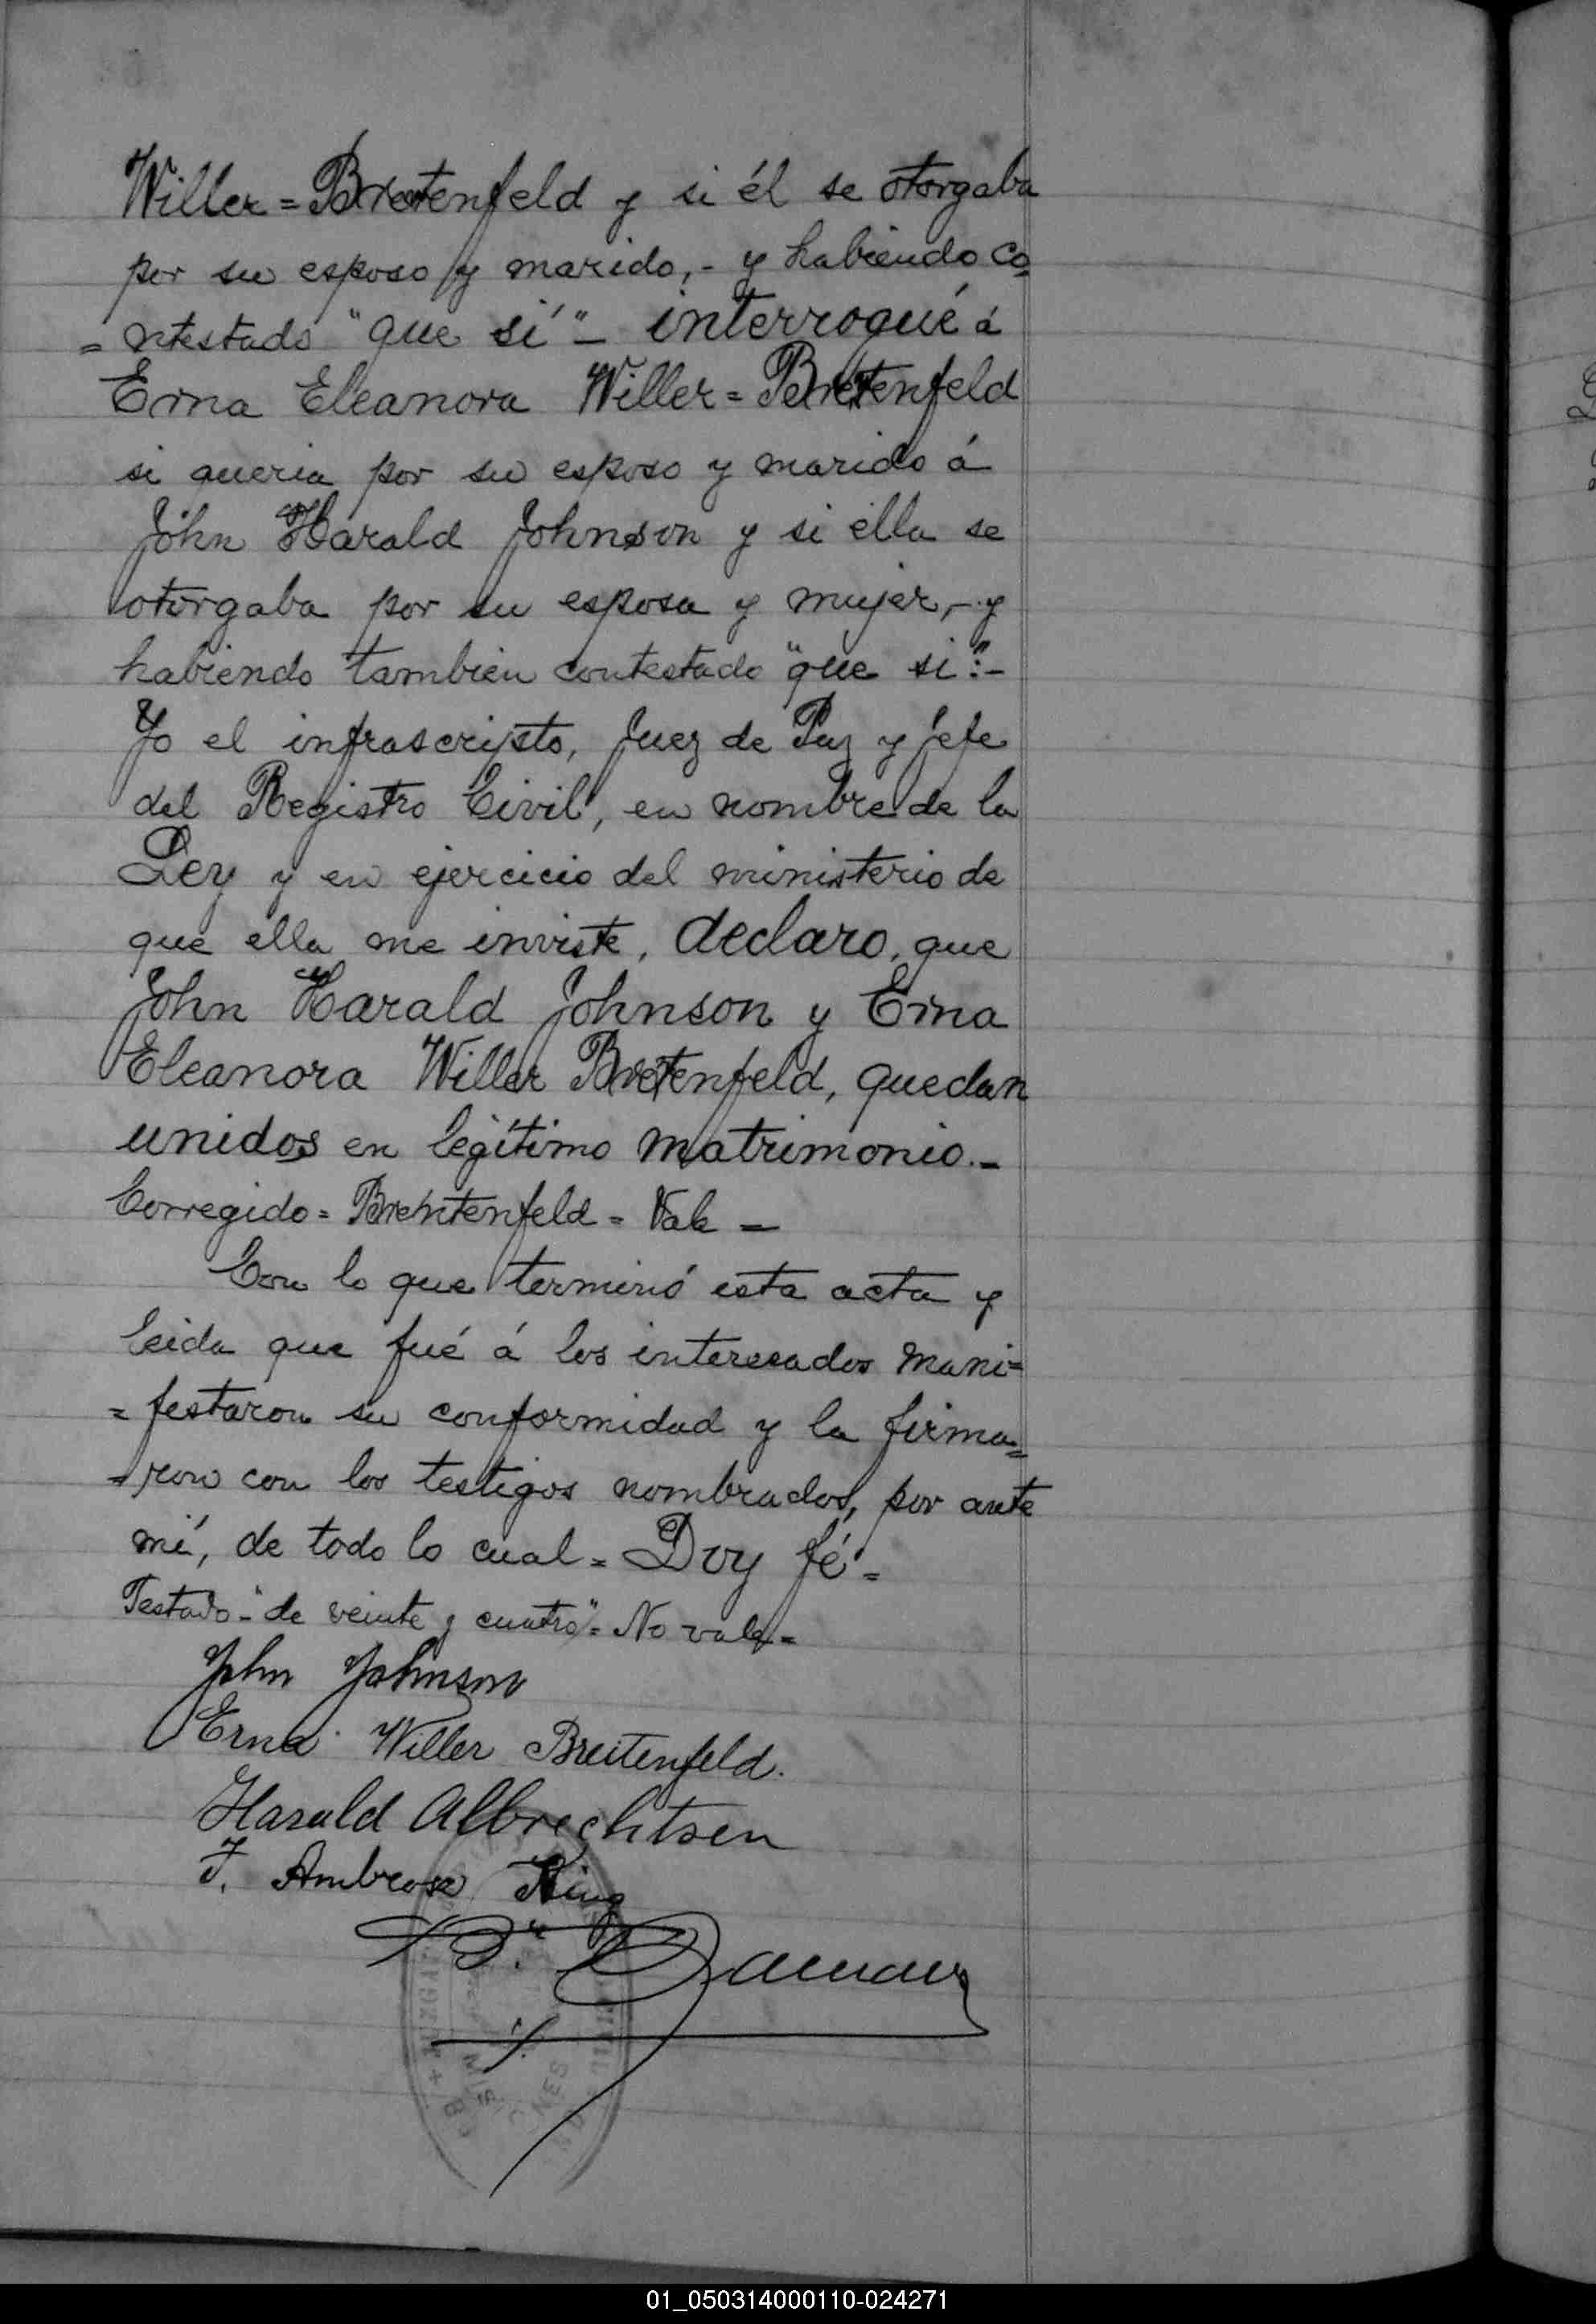 Willer = Breitenfeld y si él se otorgaba
por su esposo y marido, - y habiendo co=
= ntestado "que sí" - interrogué á
Erna Eleanora Willer = Breitenfeld
si queria por su esposo y marido á
John Harald Johnson y si ella se
otorgaba por su esposa y mujer, - y
habiendo tambien contestado "que si": -
Yo el infrascripto, Juez de Paz y Jefe
del Registro Civil, en nombre de la
Ley y en ejercicio del ministerio de
que ella me inviste, declaro, que
John Harald Johnson y Erna
Eleanora Willer Breitenfeld, quedan
unidos en legítimo matrimonio. -
Corregido = Breitenfeld = Vale -
Con lo que terminó esta acta y
leida que fué á los interesados mani=
= festaron su conformidad y la firma=
= ron con los testigos nombrados, por ante
mí, de todo lo cual = Doy fé =
Testado - "de veinte y cuatro" = No vale =
John Johnson
Erna Willer Breitenfeld.
Harald Albrechtsen
F. Ambrose King
MISIONES
01_050314000110-024271